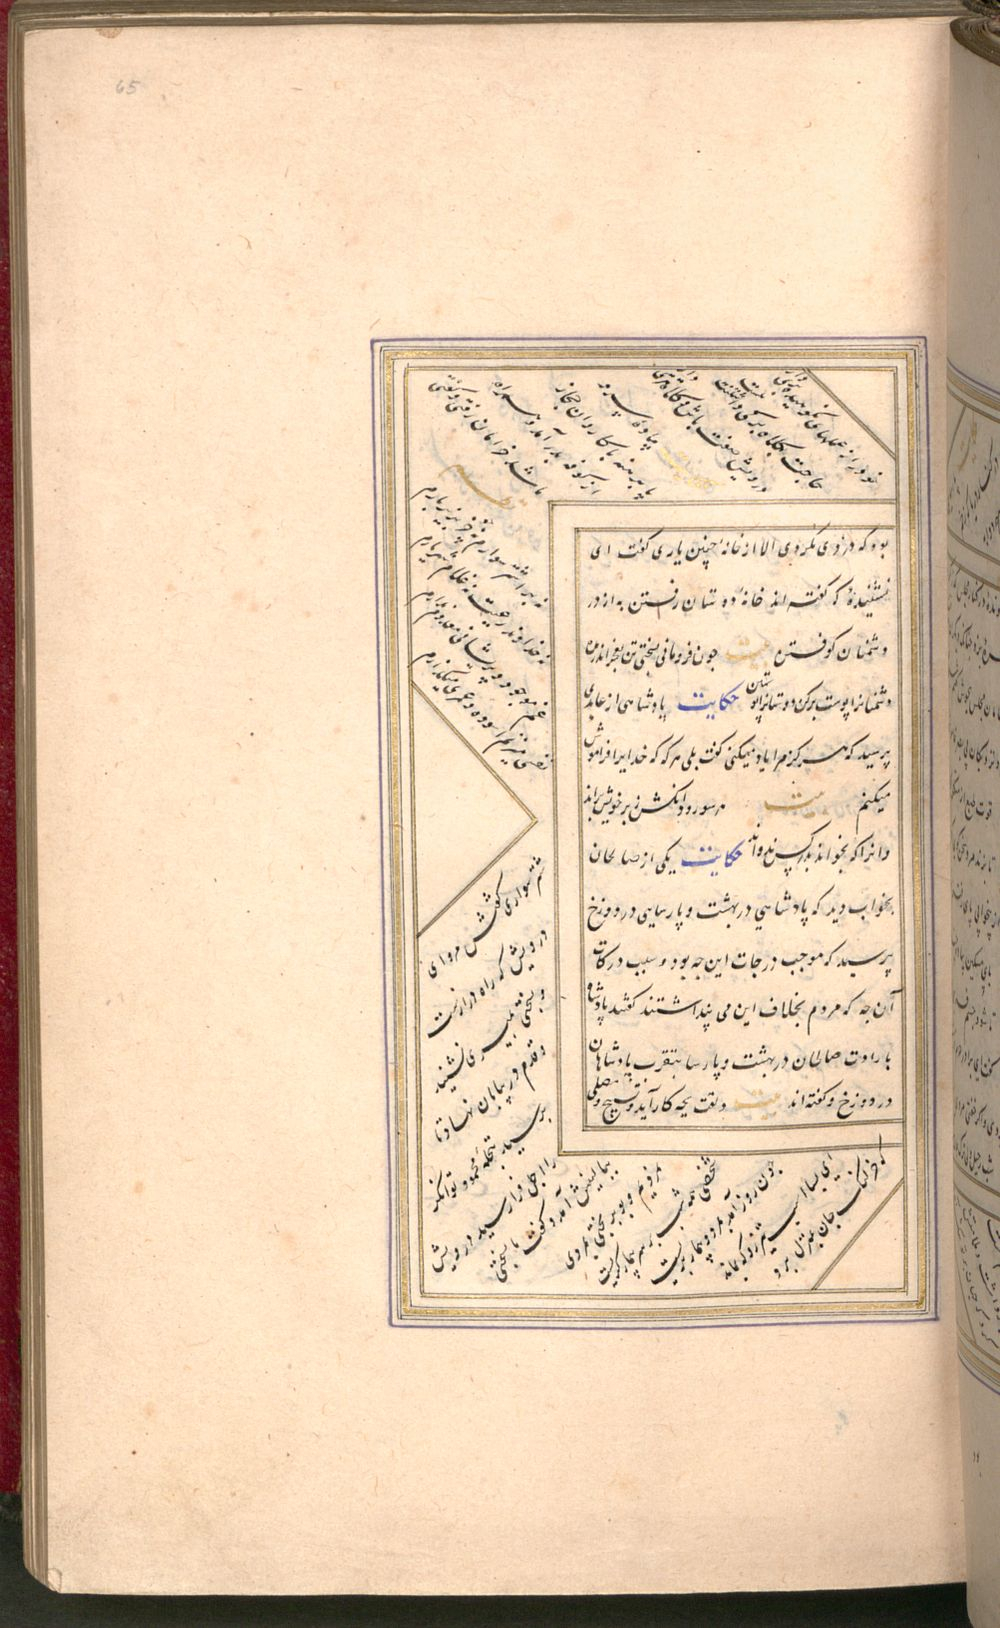 65
بود که دزدی نکردی الا از خانه چنین یاری گفت ای
نشنیدۀ که گفته اند خانه ده ستان رفتن به از در
دشمنان کوفتن بیت چون فرومانی بسختی تن بعجز اندر مده
دشمنانرا پوست برکن دوستانرا پوستین حکایت پادشاهی از عابدی
پرسید که هرگز مرا یاد میکنی گفت بلی هر گه که خدایرا فراموش
میکنم بیت هر سو دود آنکش ز بر خویش براند
وانرا که بخواند بدر کس ندواند حکایت یکی از صالحان
بخواب دید که پادشاهی در بهشت و پارسایی در دوزخ
پرسید که موجب درجات این چه بود و سبب درکات
آن چه که مردم بخلاف این می پنداشتند گفتند پادشاه
بارادت صالحان در بهشت و پارسا بتقرب پادشاهان
در دوزخ و گفته اند بیت دلقت بچه کار آید و تسبیح و مصلی
خود را ز عملهای نکوهیده بری دار
حاجت بکلاه برکی داشتنت نیست
درویش صفت باش و کلاه تتری دار
حکایت پیاده سر و
پا برهنه با کاروان حجاز
از کوفه بدر آمد و همراه
ما شد خرامان رفتی و گفتی
نه بر اشتر سوارم نه چو خر بزیر بارم
نه خداوند رعیت نه غلام شهریارم
غم موجود و پریشانی معدوم ندارم
نفسی میزنم آسوده و عمری میگذارم
شتر سواری گفتش مرو ای
درویش که راه دراز است
و بسختی بمیری نشنید
و قدم در بیابان نهاد تا
برسیدیم بنخله محمود توانگر
را اجل فرا رسید درویش
ببالینش آمد و گفت ما بسختی
نمردیم و تو بر بختی بمردی
شخصی همه شب بر سر بیمار گریست
چون روز آمد بمرد و بیمار بزیست
ای بسا اسب تیزرو که بماند
که خر لنگ جان بمنزل برد